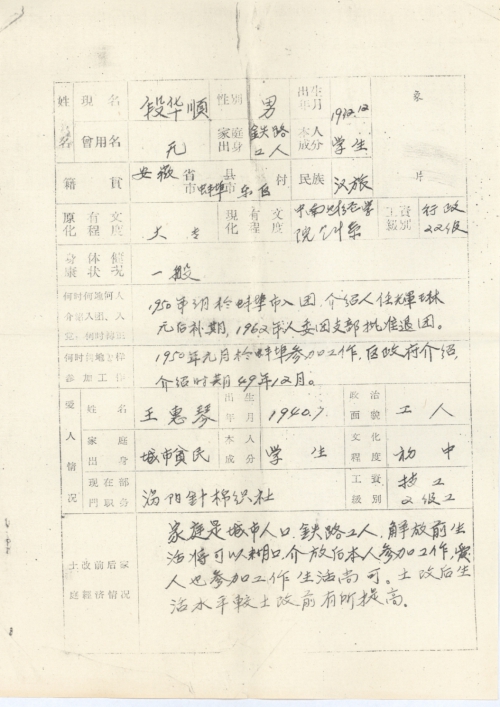 姓 現名 段华顺 性别 男 出生年月 1932.12 象
名 曾用名 元 家庭出身 鉄路工人 本人成分 学生
籍貫 安徽 省市 蚌埠 县市 东 区 村 民族 汉族 片
原有文化程度 大专 現有文化程度 中南 学院 系 工資級别 行政22級
身体健康状况 一般
何时何地何人介紹入团、入党,何时轉正 1950年3月於蚌埠市入团,介绍人任 林
元后补期,1962年人委团支部批准退团。
何时何地怎样参加工作 1950年元月於蚌埠参加工作,区政府介绍
介绍时期49年12月。
爱人情况 姓名 王惠琴 出生年月 1940.7 政治面貌 工人
家庭出身 城市貧民 本人成分 学生 文化程度 初中
現在部門职务 涡阳針棉织社 工資級别 技工2级工
土改前后家庭經济情况 家庭是城市人口,鉄路工人,解放前生
活将可以糊口,介放后本人参加工作,爱
人也参加工作生活尚可。土改后生
活水平較土改前有所提高.